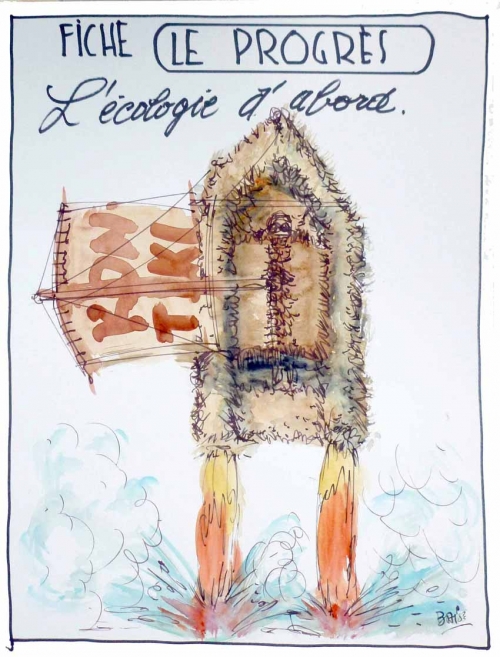 FICHE LE PROGRÈS
L'écologie d'abord.
KON
TIKI